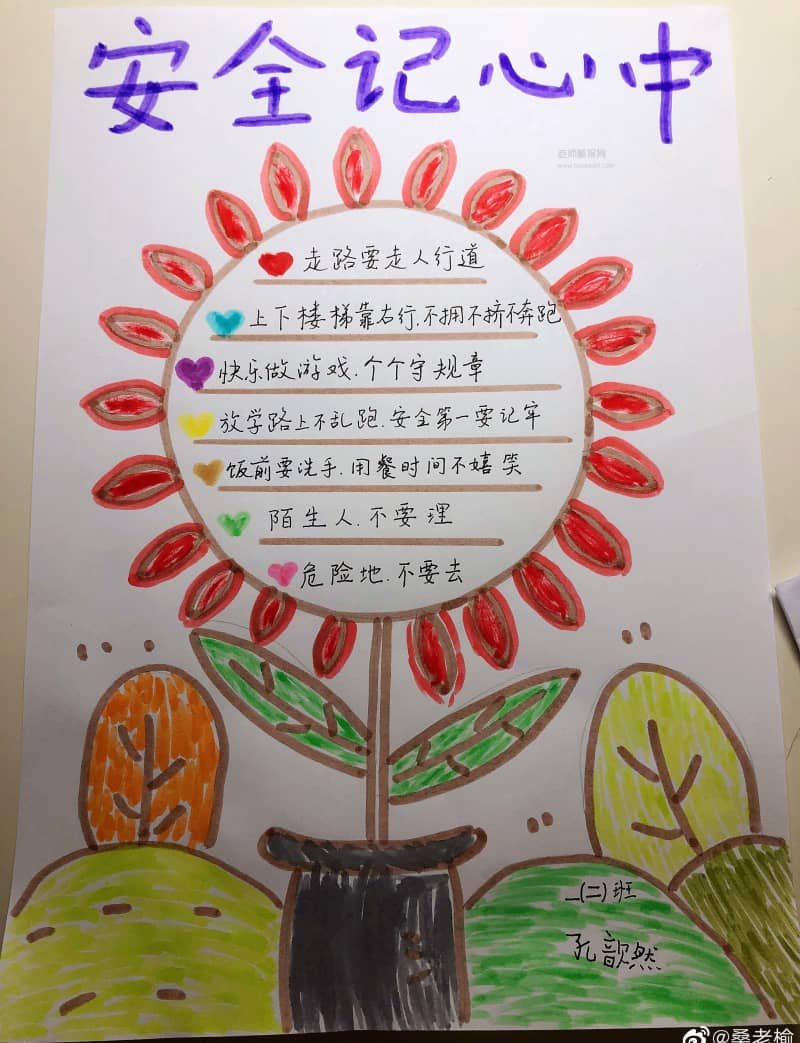 安全记心中
老师板报网
走路要走人行道
上下楼梯靠右行.不拥不挤不奔跑
快乐做游戏.个个守规章
放学路上不乱跑.安全第一要记牢
饭前要洗手.用餐时间不嬉笑
陌生人.不要理
危险地.不要去
一(二)班
孔歆然
@桑老榆